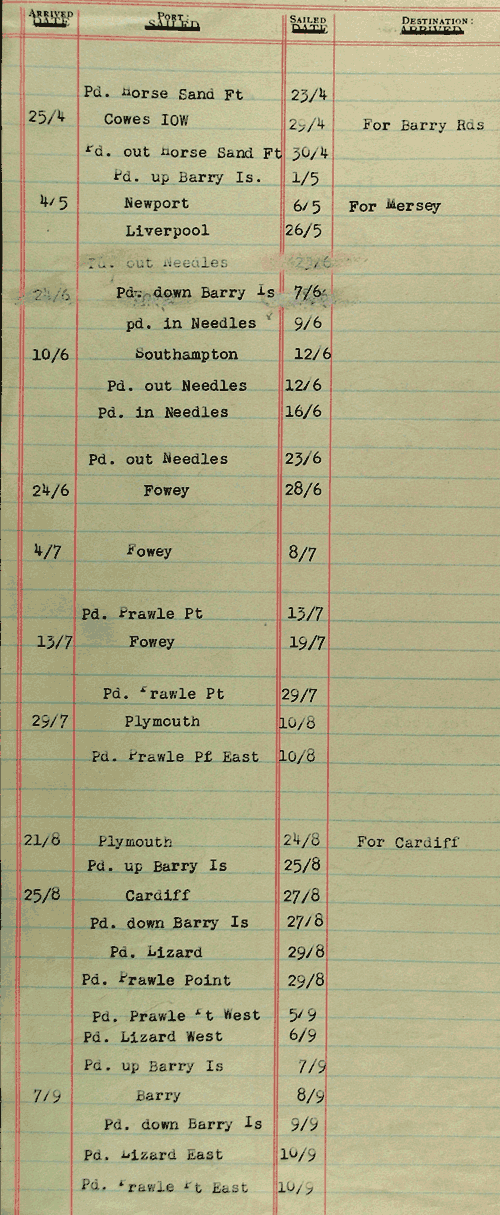 ARRIVED DATE PORT: SAILED SAILED DATE DESTINATION: ARRIVED
Pd. Horse Sand Ft 23/4
25/4 Cowes IOW 29/4 For Barry Rds
Pd. out Horse Sand Ft 30/4
Pd. up Barry Is. 1/5
4/5 Newport 6/5 For Mersey
Liverpool 26/5
Pd. out Needles 23/6
24/6 Pd. down Barry Is 7/6
pd. in Needles 9/6
10/6 Southampton 12/6
Pd. out Needles 12/6
Pd. in Needles 16/6
Pd. out Needles 23/6
24/6 Fowey 28/6
4/7 Fowey 8/7
Pd. Prawle Pt 13/7
13/7 Fowey 19/7
Pd. Prawle Pt 29/7
29/7 Plymouth 10/8
Pd. Prawle Pf East 10/8
21/8 Plymouth 24/8 For Cardiff
Pd. up Barry Is 25/8
25/8 Cardiff 27/8
Pd. down Barry Is 27/8
Pd. Lizard 29/8
Pd. Prawle Point 29/8
Pd. Prawle Pt West 5/9
Pd. Lizard West 6/9
Pd. up Barry Is 7/9
7/9 Barry 8/9
Pd. down Barry Is 9/9
Pd. Lizard East 10/9
Pd. Prawle Pt East 10/9